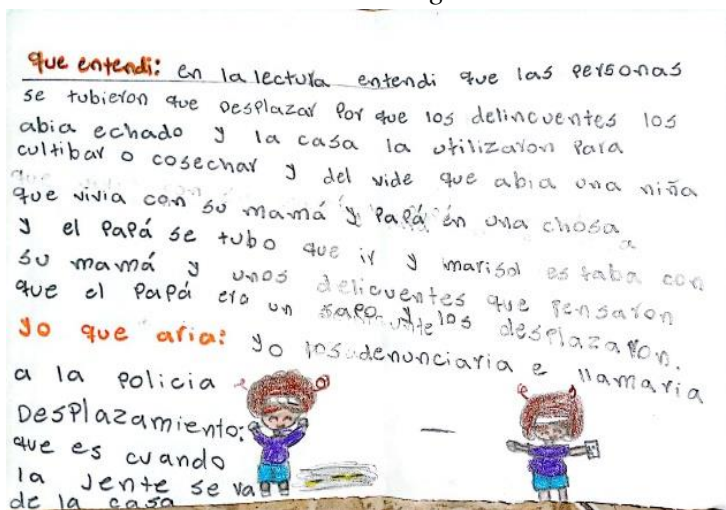 que entendi: en la lectura entendi que las personas
se tubieron que Desplazar Por que los delincuentes los
abia echado y la casa la utilizaron Para
cultibar o cosechar y del vide que abia una niña
que vivia con su mamá y Papá en una chosa
y el Papá se tubo que ir y marisol estaba con
su mamá y unos delicuentes que Pensaron
que el Papá era un sapo y los desplazaron.
yo que aria: yo los denunciaria e llamaria
a la Policia
Desplazamiento:
que es cuando
la Jente se va
de la casa